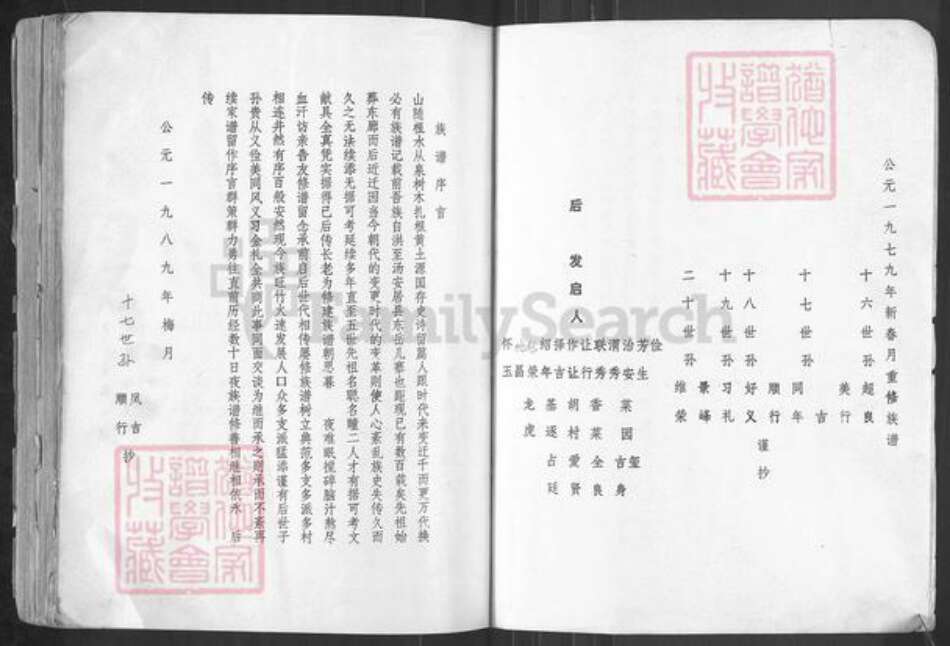 公元一九七九年新春月重修族谱
十六世孙 超良
美行
十七世孙 吉
同年
顺行
十八世孙 好义 谨抄
十九世孙 习礼
景峰
二十世孙 维荣
后发启人
族谱序言
山随植水从泉树木扎根黄土源国存史诗留篇人跟时代来变迁千而更万代换
必有族谱记载前吾族自洪至汤安居县东出儿寨也距现已有数百载矣先祖始
葬东廊而后近迁因当今朝代的变更时代的变革则使人心紊乱族史失传久而
久之无法续添无据可考延续多年直至五世先祖名聪名瞳二人才有据可考文
献具全真凭实据得已后传长老为修建族谱朝思暮 夜难眠搅碎脑汁熬尽
血汗访亲告友修谱留念承前启后世代相传屡修族谱树立典范多支多派多村
相连井然有序百般安然现今族旺竹大速发展人口众多支派猛添谨有后世子
孙贵从义俭美同风义习金礼全共同此事同面交谈为继而承之则承而不紊再
续家谱留作序言群策群力勇往直前历经数十日夜族谱修善相继相依永 后
传
公元一九八九年梅月
十七世孙 凤吉 顺行 抄
犹他家谱学会收藏
犹他家谱学会收藏
FamilySearch